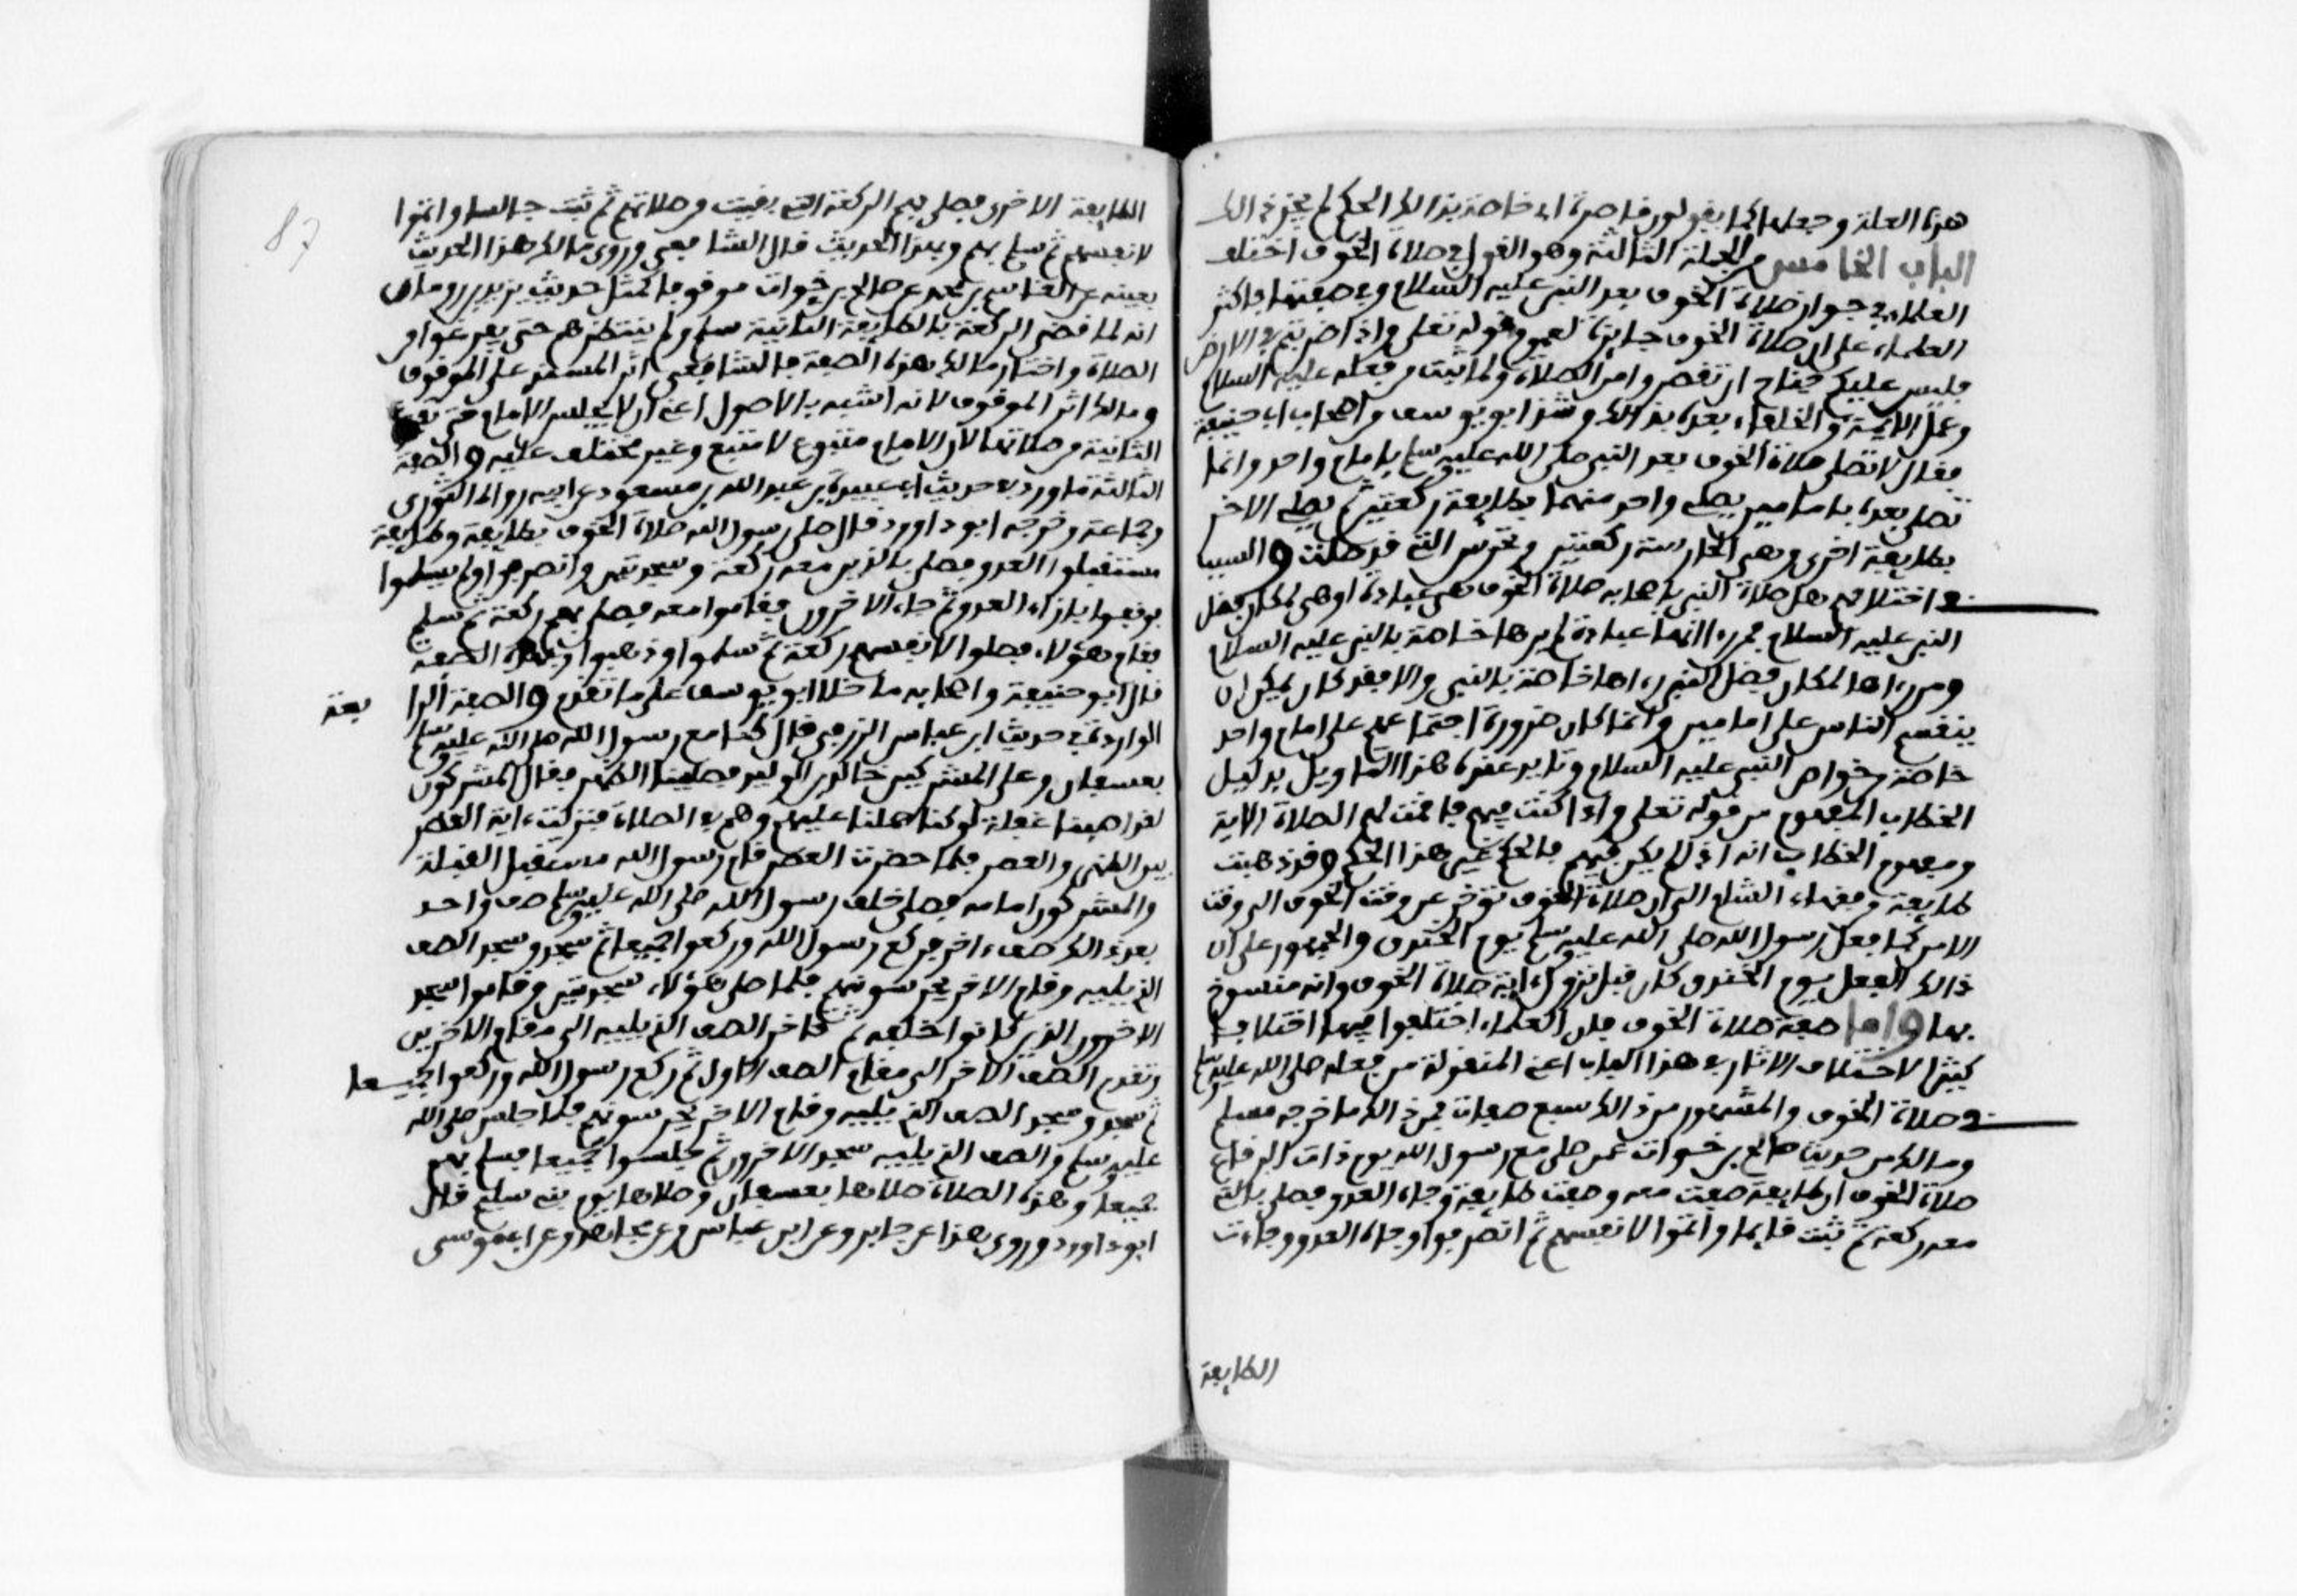 هذه العلة وجعلها كما يقولون قاصرة اي خاصة بذالك الحكم لم يجز ذالك
الباب الخامس من الجملة الثالثة وهو القول في صلاة الخوف اختلف
العلماء في جواز صلاة الخوف بعد النبي عليه السلام وفي صفتها فاكثر
العلماء على ان صلاة الخوف جايزة لعموم قوله تعلى واذا ضربتم في الارض
فليس عليكم جناح ان تقصروا من الصلاة ولما ثبت من فعله عليه السلام
وعمل الايمة والخلفاء بعده بذالك وشذ ابو يوسف من اصحاب ابي حنيفة
فقال لا تصلى صلاة الخوف بعد النبي صلى الله عليه وسلم بامام واحد وانما
تصلى بعده بامامين يصلي واحد منهما بطايفة ركعتين ثم يصلي الاخر
بطايفة اخرى وهي الحارسة ركعتين وتحرس التي قد صلت والسبب
في اختلافهم هل صلاة النبي باصحابه صلاة الخوف هي عبادة او هي لمكان فضل
النبي عليه السلام فمن رءا انها عبادة لم يرها خاصة بالنبي عليه السلام
ومن رءاها لمكان فضل النبي رءاها خاصة بالنبي والا فقد كان يمكن ان
ينقسم الناس على امامين وانما كان ضرورة اجتماعهم على امام واحد
خاصة من خواص النبي عليه السلام وتايد عنده هذا التاويل بدليل
الخطاب المفهوم من قوله تعلى واذا كنت فيهم فاقمت لهم الصلاة الاية
ومفهوم الخطاب انه اذا لم يكن فيهم فالحكم غير هذا الحكم وقد ذهبت
طايفة من فقهاء الشام الى ان صلاة الخوف توخر عن وقت الخوف الى وقت
الامن كما فعل رسول الله صلى الله عليه وسلم يوم الخندق والجمهور على ان
ذالك الفعل يوم الخندق كان قبل نزول ءاية صلاة الخوف وانه منسوخ
بها واما صفة صلاة الخوف فان العلماء اختلفوا فيها اختلافا
كثيرا لاختلاف الاثار في هذا الباب اعني المنقولة من فعله صلى الله عليه وسلم
في صلاة الخوف والمشهور من ذالك سبع صفات فمن ذالك ما خرجه مسلم
ومالك من حديث صالح بن خوات عمن صلى مع رسول الله يوم ذات الرقاع
صلاة الخوف ان طايفة صفت معه وصفت طايفة وجاه العدو فصلى بالتي
معه ركعة ثم ثبت قايما واتموا لانفسهم ثم انصرفوا وجاه العدو وجاءت
الطايفة
87
الطايفة الاخرى فصلى بهم الركعة التي بقيت من صلاتهم ثم ثبت جالسا واتموا
لانفسهم ثم سلم بهم وبهذا الحديث قال الشافعي وروى مالك هذا الحديث
بعينه عن القاسم بن محمد عن صالح بن خوات موقوفا كمثل حديث يزيد بن رومان
انه لما قضى الركعة بالطايفة الثانية سلم ولم ينتظرهم حتى يفرغوا من
الصلاة واختار مالك هذه الصفة فالشافعي اثر المسند على الموقوف
ومالك اثر الموقوف لانه اشبه بالاصول اعني ان لا يجلس الامام حتى تفرغ
الثانية من صلاتها لان الامام متبوع لا متبع وغير مختلف عليه والصفة
الثالثة ما ورد في حديث ابي عبيدة بن عبد الله بن مسعود عن ابيه رواه الثوري
وجماعة وخرجه ابو داوود قال صلى رسول الله صلاة الخوف بطايفة وطايفة
مستقبلوا العدو فصلى بالذين معه ركعة وسجدتين وانصرفوا ولم يسلموا
فوقفوا بازاء العدو ثم جاء الاخرون فقاموا معه فصلى بهم ركعة ثم سلم
فقام هؤلاء فصلوا لانفسهم ركعة ثم سلموا وذهبوا وبهذه الصفة
قال ابو حنيفة واصحابه ما خلا ابو يوسف على ما تقدم والصفة الرا بعة
الواردة في حديث ابي عياش الزرقي قال كنا مع رسول الله صلى الله عليه وسلم
بعسفان وعلى المشركين خالد بن الوليد فصلينا الظهر فقال المشركون
لقد اصبنا غفلة لو كنا حملنا عليهم وهم في الصلاة فنزلت ءاية القصر
بين الظهر والعصر فلما حضرت العصر قام رسول الله مستقبل القبلة
والمشركون امامه فصلى خلف رسول الله صلى الله عليه وسلم صف واحد
بعد ذالك صف ءاخر فركع رسول الله وركعوا جميعا ثم سجد وسجد الصف
الذ يليه وقام الاخر يحرسونهم فلما صلى هؤلاء سجدتين وقاموا سجد
الاخرون الذين كانوا خلفه ثم تاخر الصف الذ يليه الى مقام الاخرين
وتقدم الصف الاخر الى مقام الصف الاول ثم ركع رسول الله وركعوا جميعا
ثم سجد وسجد الصف الذ يليه وقام الاخر يحرسونهم فلما جلس صلى الله
عليه وسلم والصف الذ يليه سجد الاخرون ثم جلسوا جميعا فسلم بهم
جميعا وهذه الصلاة صلاها بعسفان وصلاها يوم بني سليم قال
ابو داوود وروي هذا عن جابر وعن ابن عباس وعن مجاهد وعن ابي موسى